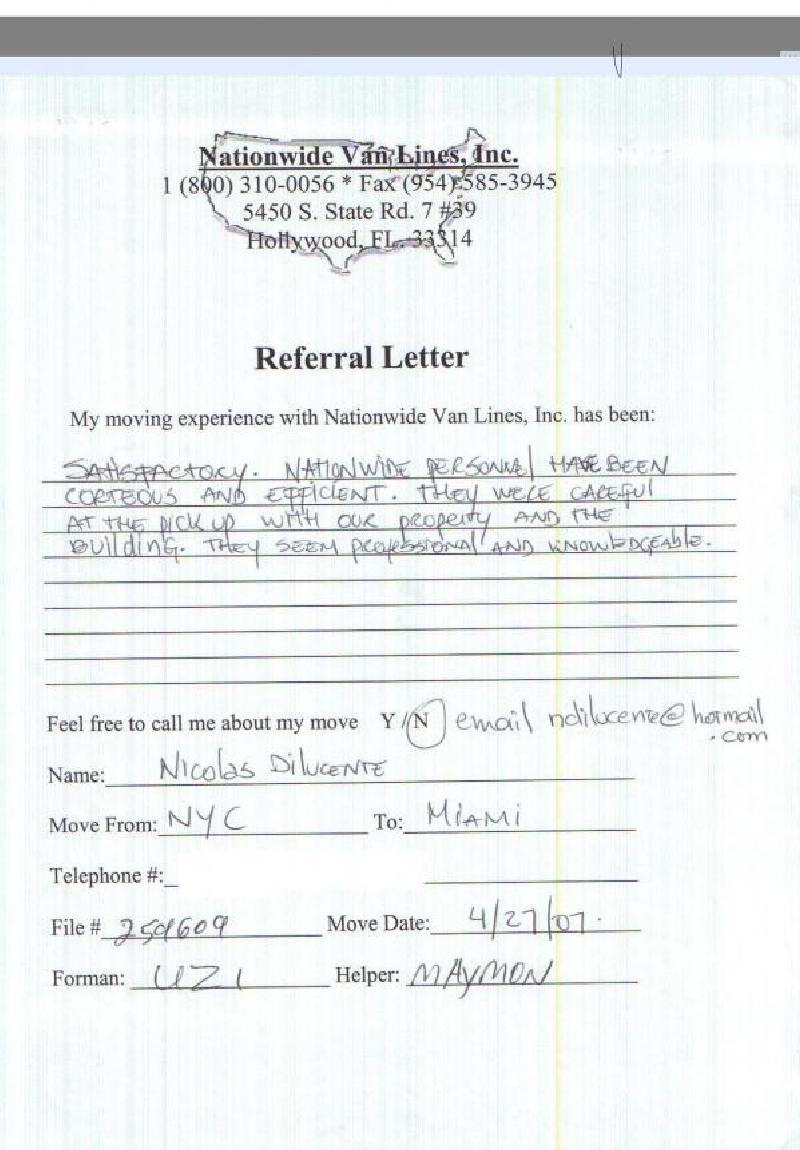 Nationwide Van Lines, Inc.
1 (800) 310-0056 * Fax (954) 585-3945
5450 S. State Rd. 7 #39
Hollywood, FL. 33314
Referral Letter
My moving experience with Nationwide Van Lines, Inc. has been:
SATISFACTORY. NATIONWIDE PERSONAL HAVE BEEN
CORTEOUS AND EFFICIENT. THEY WERE CAREFUL
AT THE PICK UP WITH OUR PROPERTY AND THE
BUILDING. THEY SEEM PROFESSIONAL AND KNOWLEDGEABLE.
Feel free to call me about my move Y / N email ndilucente@hotmail
.com
Name: Nicolas DiLucente
Move From: NYC To: MIAMI
Telephone #:
File # 259609 Move Date: 4/27/07.
Forman: UZI Helper: MAYMON